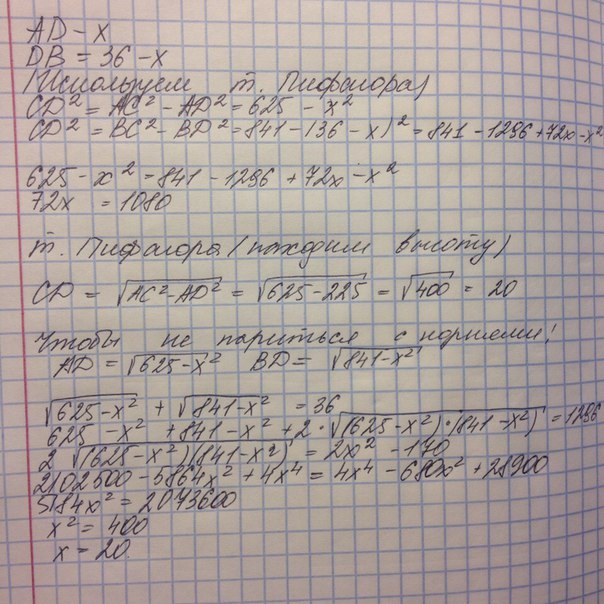 AD - x
DB = 36 - x
(Используем т. Пифагора)
CD² = AC² - AD² = 625 - x²
CD² = BC² - BD² = 841 - (36 - x)² = 841 - 1296 + 72x - x²
625 - x² = 841 - 1296 + 72x - x²
72x = 1080
т. Пифагора (находим высоту)
CD = √AC² - AD² = √625 - 225 = √400 = 20
Чтобы не париться с корнями!
AD = √625 - x² BD = √841 - x²
√625 - x² + √841 - x² = 36
625 - x² + 841 - x² + 2 · √(625 - x²) · (841 - x²) = 1296
2 √(625 - x²)(841 - x²) = 2x² - 170
2102500 - 5864x² + 4x⁴ = 4x⁴ - 680x² + 28900
5184x² = 2073600
x² = 400
x = 20.